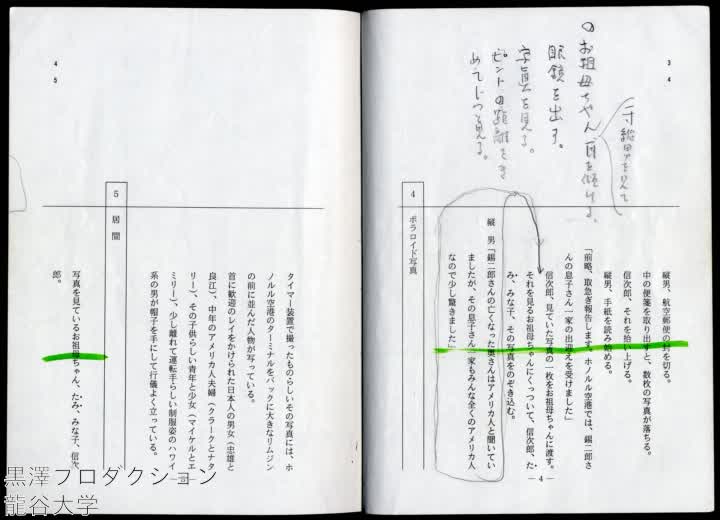 34
○お祖母ちゃん、首を傾ける。
一寸縦男を見て
眼鏡を出す。
写真を見る。
ピントの距離をき
めてじっと見る。
縦男、航空郵便の封を切る。
中の便箋を取り出すと、数枚の写真が落ちる。
信次郎、それを拾い上げる。
縦男、手紙を読み始める。
「前略、取急ぎ報告します。ホノルル空港では、錫二郎さ
んの息子さん一家の出迎えを受けました」
信次郎、見ていた写真の一枚をお祖母ちゃんに渡す。
それを見るお祖母ちゃんにくっついて、信次郎、た
み、みな子、その写真をのぞき込む。
縦 男「錫二郎さんの亡くなった奥さんはアメリカ人と聞いてい
ましたが、その息子さん一家もみんな全くのアメリカ人
なので少し驚きました」
4 ポラロイド写真
― 4 ―
45
タイマー装置で撮ったものらしいその写真には、ホ
ノルル空港のターミナルをバックに大きなリムジン
の前に並んだ人物が写っている。
首に歓迎のレイをかけられた日本人の男女（忠雄と
良江）、中年のアメリカ人夫婦（クラークとナタ
リー）、その子供らしい青年と少女（マイケルとエ
ミリー）、少し離れて運転手らしい制服姿のハワイ
系の男が帽子を手にして行儀よく立っている。
5 居 間
写真を見ているお祖母ちゃん、たみ、みな子、信次
郎。
黒澤プロダクション
龍谷大学